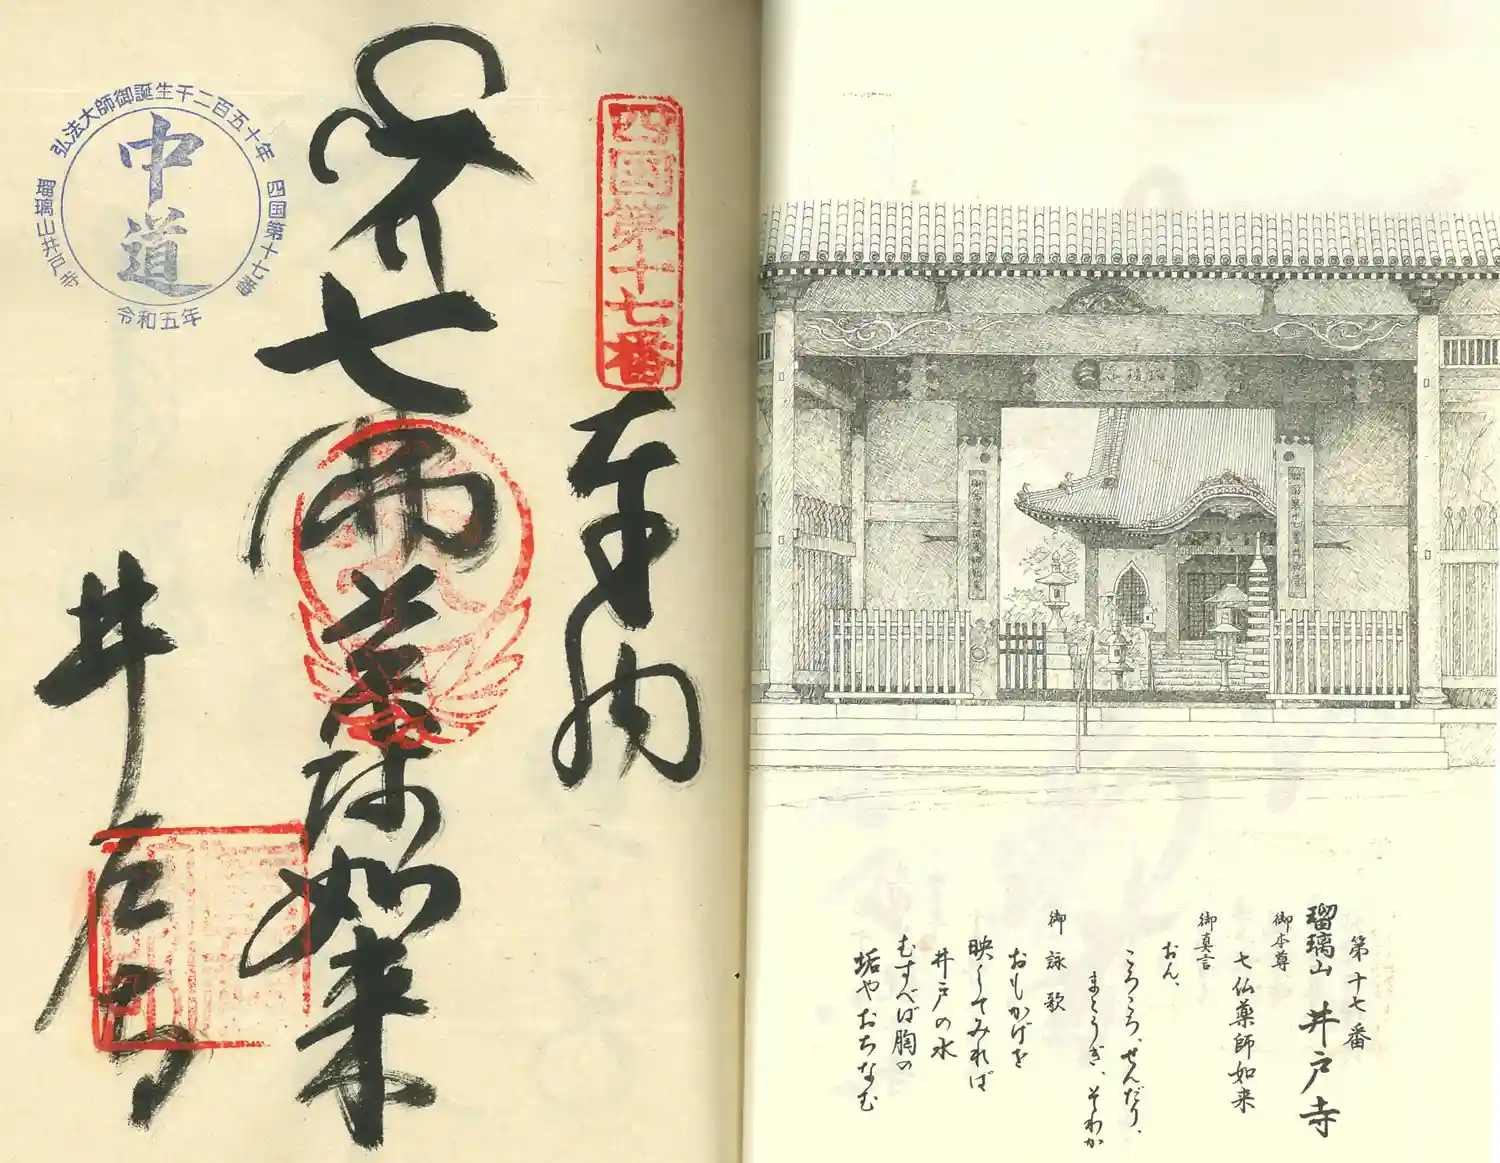 第十七番
瑠璃山 井戸寺
御本尊
七仏薬師如来
御真言
おん、
ころころ、せんだり、
まとうぎ、そわか
御詠歌
おもかげを
映してみれば
井戸の水
むすべば胸の
垢やおちなむ
四国第十七番
奉納
七佛薬師如来
井戸寺
弘法大師御誕生千二百五十年
四国第十七番
瑠璃山井戸寺
中道
令和五年